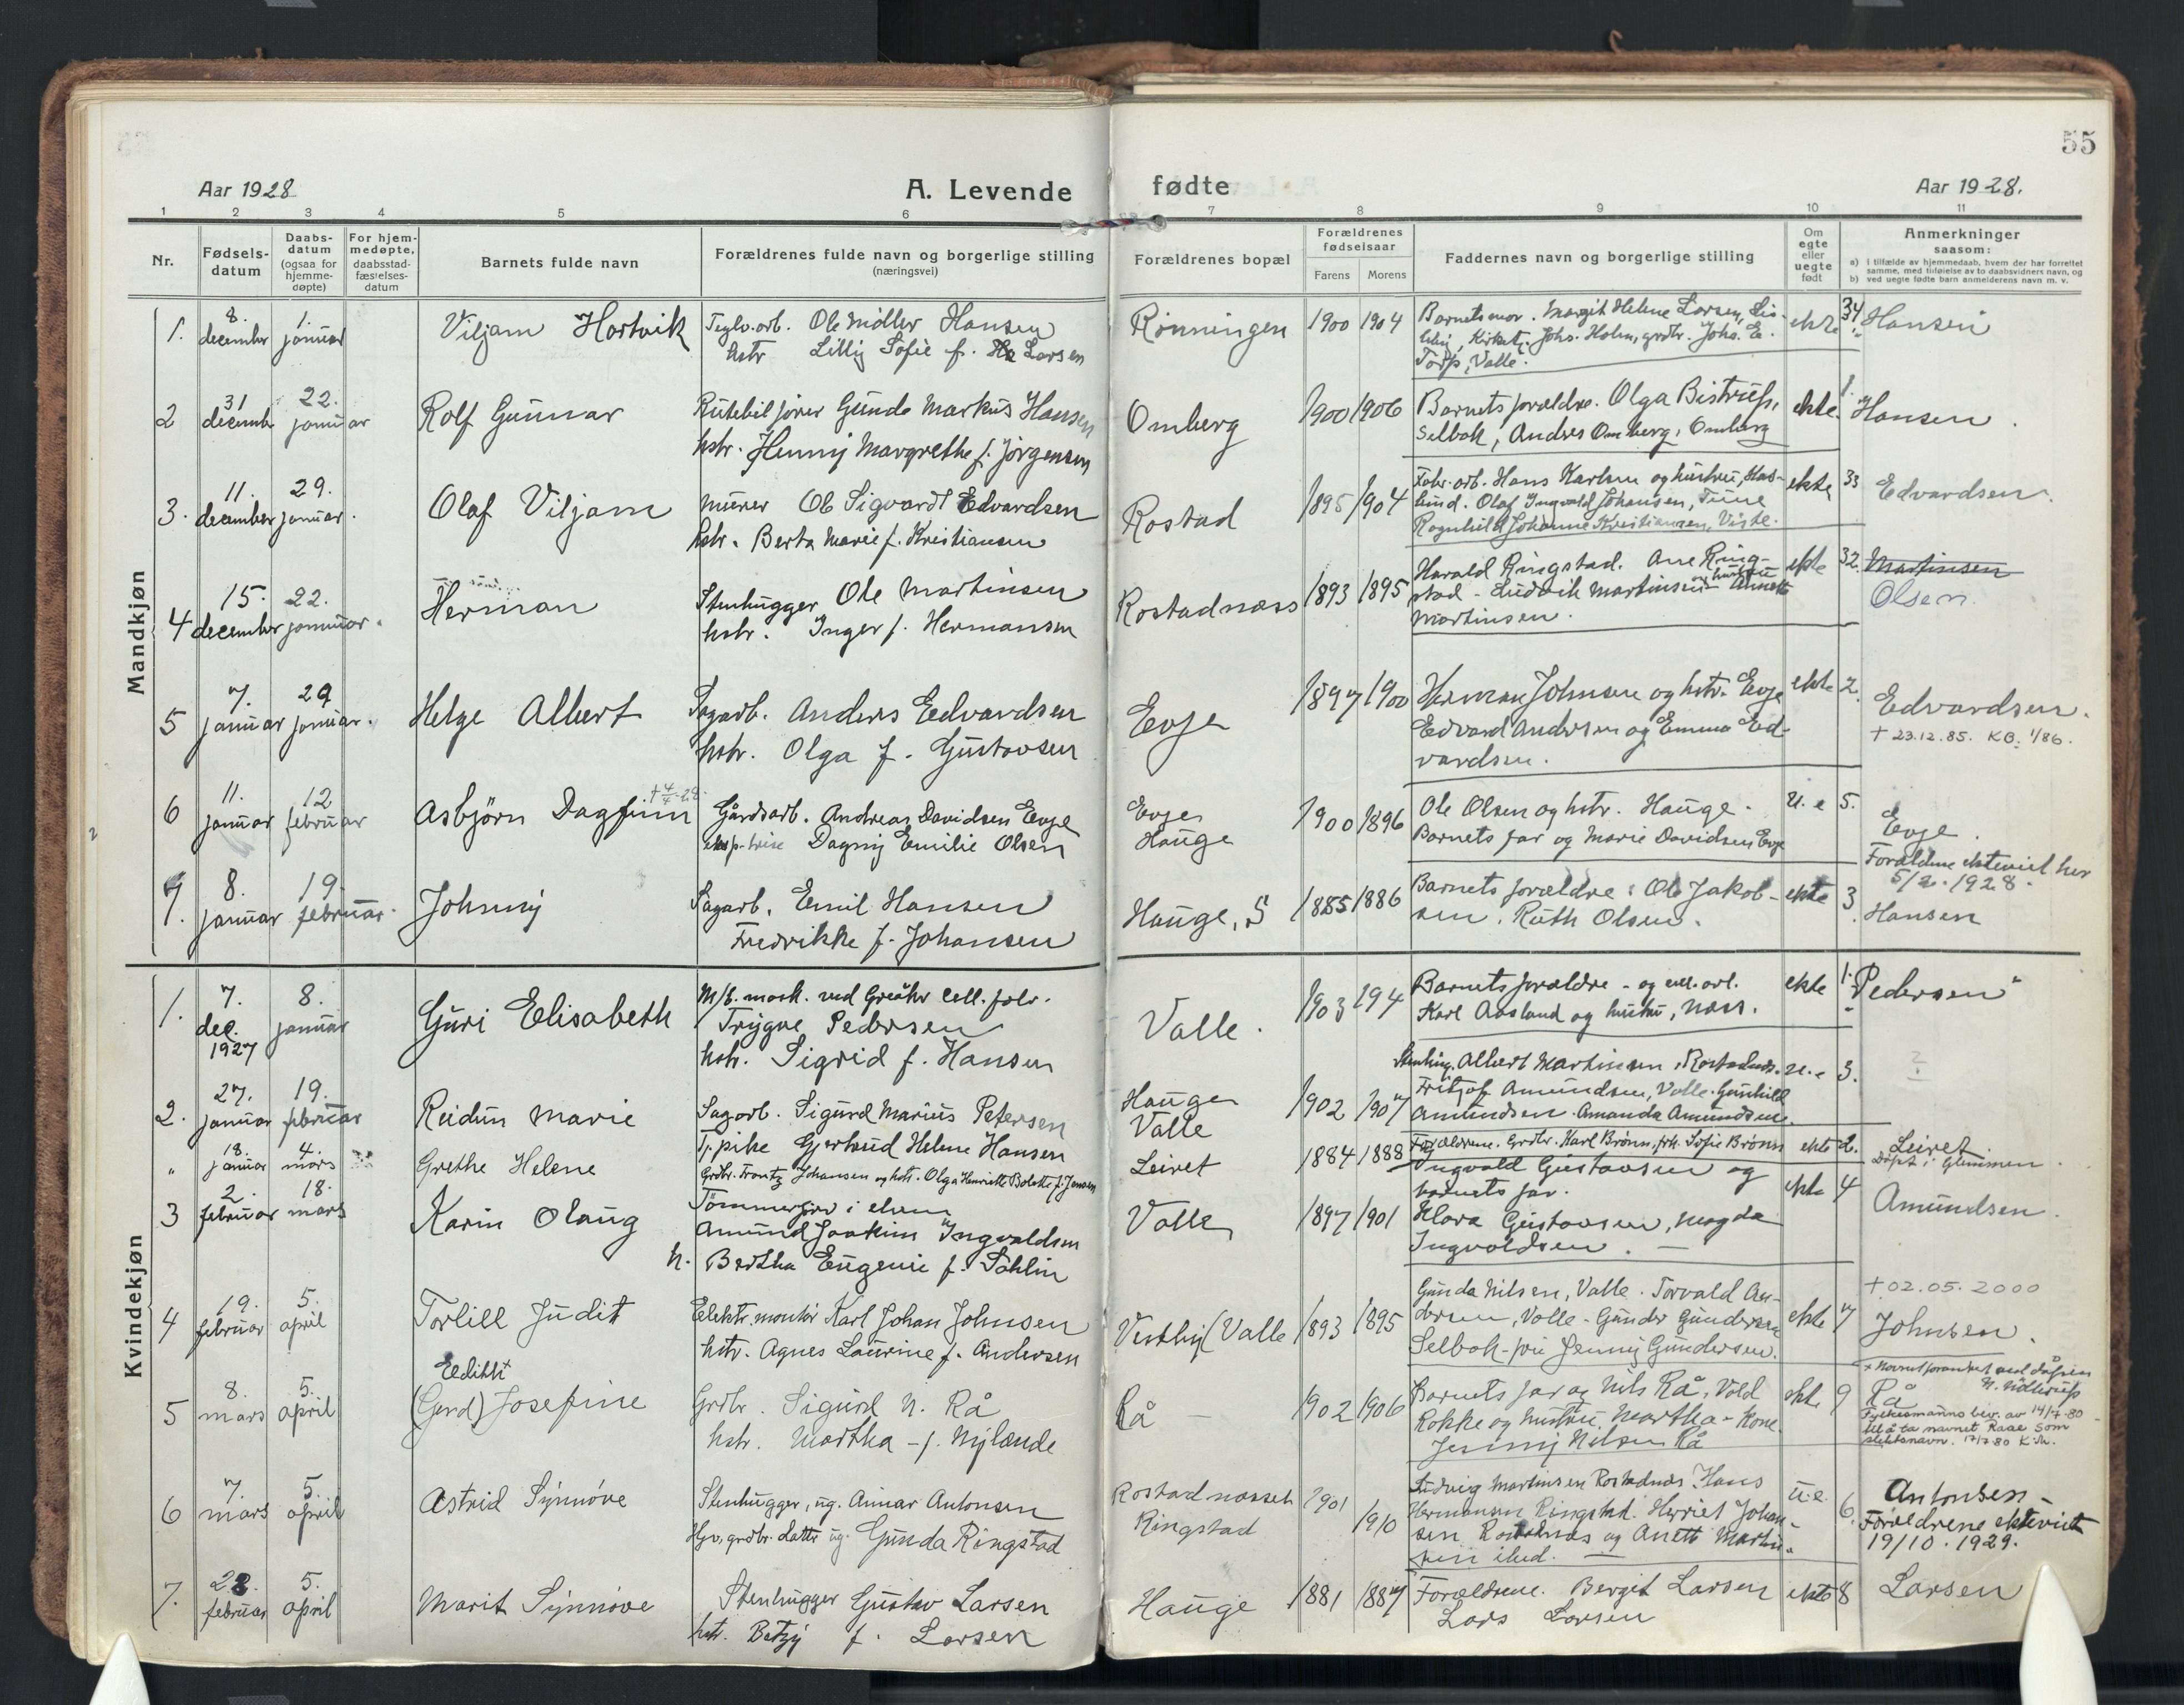 55
Aar 1928
A. Levende
fødte
Aar 1928.
1 2 3 4 5 6 7 8 9 10 11
Nr.
Fødsels-
datum
Daabs-
datum
(ogsaa for
hjemme-
døpte)
For hjem-
medøpte,
daabsstad-
fæstelses-
datum
Barnets fulde navn
Forældrenes fulde navn og borgerlige stilling
(næringsvei)
Forældrenes bopæl
Forældrenes
fødselsaar
Farens Morens
Faddernes navn og borgerlige stilling
Om
egte
eller
uegte
født
Anmerkninger
saasom:
a) I tilfælde av hjemmedaab, hvem der har forrettet
samme, med tilføielse av to daabsvidners navn, og
b) ved uegte fødte barn anmelderens navn m. v.
Mandkjøn
1. 8. december 1. januar Viljam Hartvik
Teglv.arb. Ole Møller Hansen
hstr Lilly Sofie f. Larsen
Rønningen 1900 1904
Barnets mor. Margit Helene Larsen, Lis-
leby, Kirket. Johs. Holm, grdbr. Johs. E.
Torp, Valle.
ekte 34 Hansen
2 31 decembr 22. januar Rolf Gunnar
Rutebilfører Gunda Markus Hansen
hstr. Henny Margrethe f. Jørgensen
Omberg 1900 1906
Barnets forældre. Olga Bistrup,
Selbak, Andrs Omberg, Omberg
ekte. 1. Hansen.
3. 11. december 29. januar. Olaf Viljam
murer Ole Sigvardt Edvardsen
hstr. Berta Marie f. Kristiansen
Rostad 1895 1904
Fabr.arb. Hans Karlsen og hustru, Has-
lund. Olaf Ingvald Johansen, Tune
Ragnhild Johanne Kristiansen, Viste.
ekte 33 Edvardsen.
4 15. december 22. januar. Herman
Stenhugger Ole Martinsen
hstr. Inger f. Hermansen
Rostadnæss 1893 1895
Harald Ringstad. Ane Ring-
stad - Ludvik Martinsen og hustru Anette
Martinsen.
ekte 32. Martinsen
Olsen.
5 7. januar 29 januar. Helge Albert
Sagarb. Anders Edvardsen
hstr. Olga f. Gustavsen
Evje 1897 1900
Herman Johnsen og hstr. Evje
Edvard Andersen og Emma Ed-
vardsen.
ekte 2. Edvardsen.
+ 23.12.85. KB. 1/86.
6 11. januar 12 februar Asbjørn Dagfinn
+ 4/4-28.
Gårdsarb. Andreas Davidsen Evje
Dagny Emilie Olsen
Evje
Hauge
1900 1896
Ole Olsen og hstr. Hauge.
Barnets far og Marie Davidsen Evje
u. e 5. Evje.
Forældrene ekteviet her
5/2.1928.
7. 8. januar 19. februar. Johnny
Sagarb. Emil Hansen
Fredrikke f. Johansen
Hauge, S 1885 1886
Barnets forældre: Ole Jakob-
sen. Ruth Olsen.
ekte 3. Hansen
Kvindekjøn
1. 7. dec. 1927 8. januar Guri Elisabeth
M/b. mask. ved Greåker Cell. fabr.
Trygve Pedersen
hstr. Sigrid f. Hansen
Valle. 1903 194
Barnets forældre - og cell. arb.
Karl Aasland og hustru, Næss.
ekte 1. Pedersen
2. 27. januar 19. februar Reidun Marie
Sagarb. Sigurd Marius Petersen
Tj.pike Gjertrud Helene Hansen
Hauge
Valle
1902 1907
Stenhug. Albert Martinsen, Rostadnæs.
Fritjof Amundsen, Valle. Gunhild
Amundsen. Amanda Amundsen.
u. e 3. ?
" 18. januar 4. mars Grethe Helene
Grdbr. Frantz Johansen og hstr. Olga Henriette Bolette f. Jensen
Leiret 1884 1888
Forældrene. Grdbr. Karl Brønn, frk. Sofie Brønn
ekte 2. Leiret.
Døpt i Glemmen.
3 2. februar 18. mars Karin Olaug
Tømmerfør i elven
Amund Joakim Ingvaldsen
h. Bertha Eugenie f. Sahlin
Valle 1897 1901
Ingvald Gustavsen og
barnets far.
Klara Gustavsen, Magda
Ingvaldsen.
ekte 4 Amundsen.
4 19. februar 5. april Torlill Judit
Elektr. montør Karl Johan Johnsen
hstr. Agnes Laurine f. Andersen
Vestby (Valle 1893 1895
Gunda Nilsen, Valle. Torvald An-
dersen, Valle - Gunder Gundersen
Selbak - fru Jenny Gundersen.
ekte 7 + 02.05.2000
Johnsen.
5 8. mars 5. april Edith+
(Gerd) Josefine
Grdbr. Sigurd N. Rå
hstr. Martha - f. Nylænde
Rå - 1902 1906
Barnets far og Nils Rå, Vold
Rokke og hustru Martha - Kone
Jenny Nilsen Rå
ekte 9 + Navnet forandret ved dåpen
Rå
Fylkesmanns bev. av 14/7-80
til å ta navnet Raae som
slektsnavn. 17/7-80
6 7. mars 5. april Astrid Synnøve
Stenhugger, ug. Ainar Antonsen
Hjv. grdbr. datter ug. Gunda Ringstad
Rostadnæsset
Ringstad
1901 1910
Ludvig Martinsen Rostadnæs. Hans
Hermansen Ringstad. Herriet Johan-
sen Rostadnæs og Anette Martin-
sen ibid.
u. e. 6. Antonsen -
Forældrene ekteviet
19/10.1929.
7. 28. februar 5. april Marit Synnøve
Stenhugger Gustav Larsen
hstr. Betzy f. Larsen
Hauge 1881 1887
Forældrene. Bergit Larsen
Lars Larsen
ekte 8 Larsen